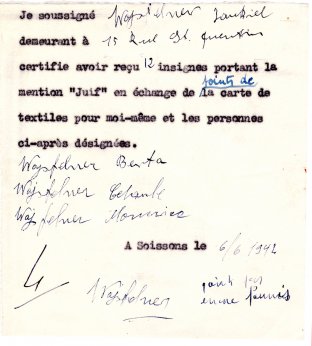 Je soussigné Wajsfelner Jankiel
demeurant à 15 Rue St. Quentin
certifie avoir reçu 12 insignes portant la
points de
mention "Juif" en échange de la carte de
textiles pour moi-même et les personnes
ci-après désignées.
Wajsfelner Berta
Wajsfelner
Wajsfelner Maurice
A Soissons le 6/6 1942
4
Wajsfelner
points pas
encore fournis